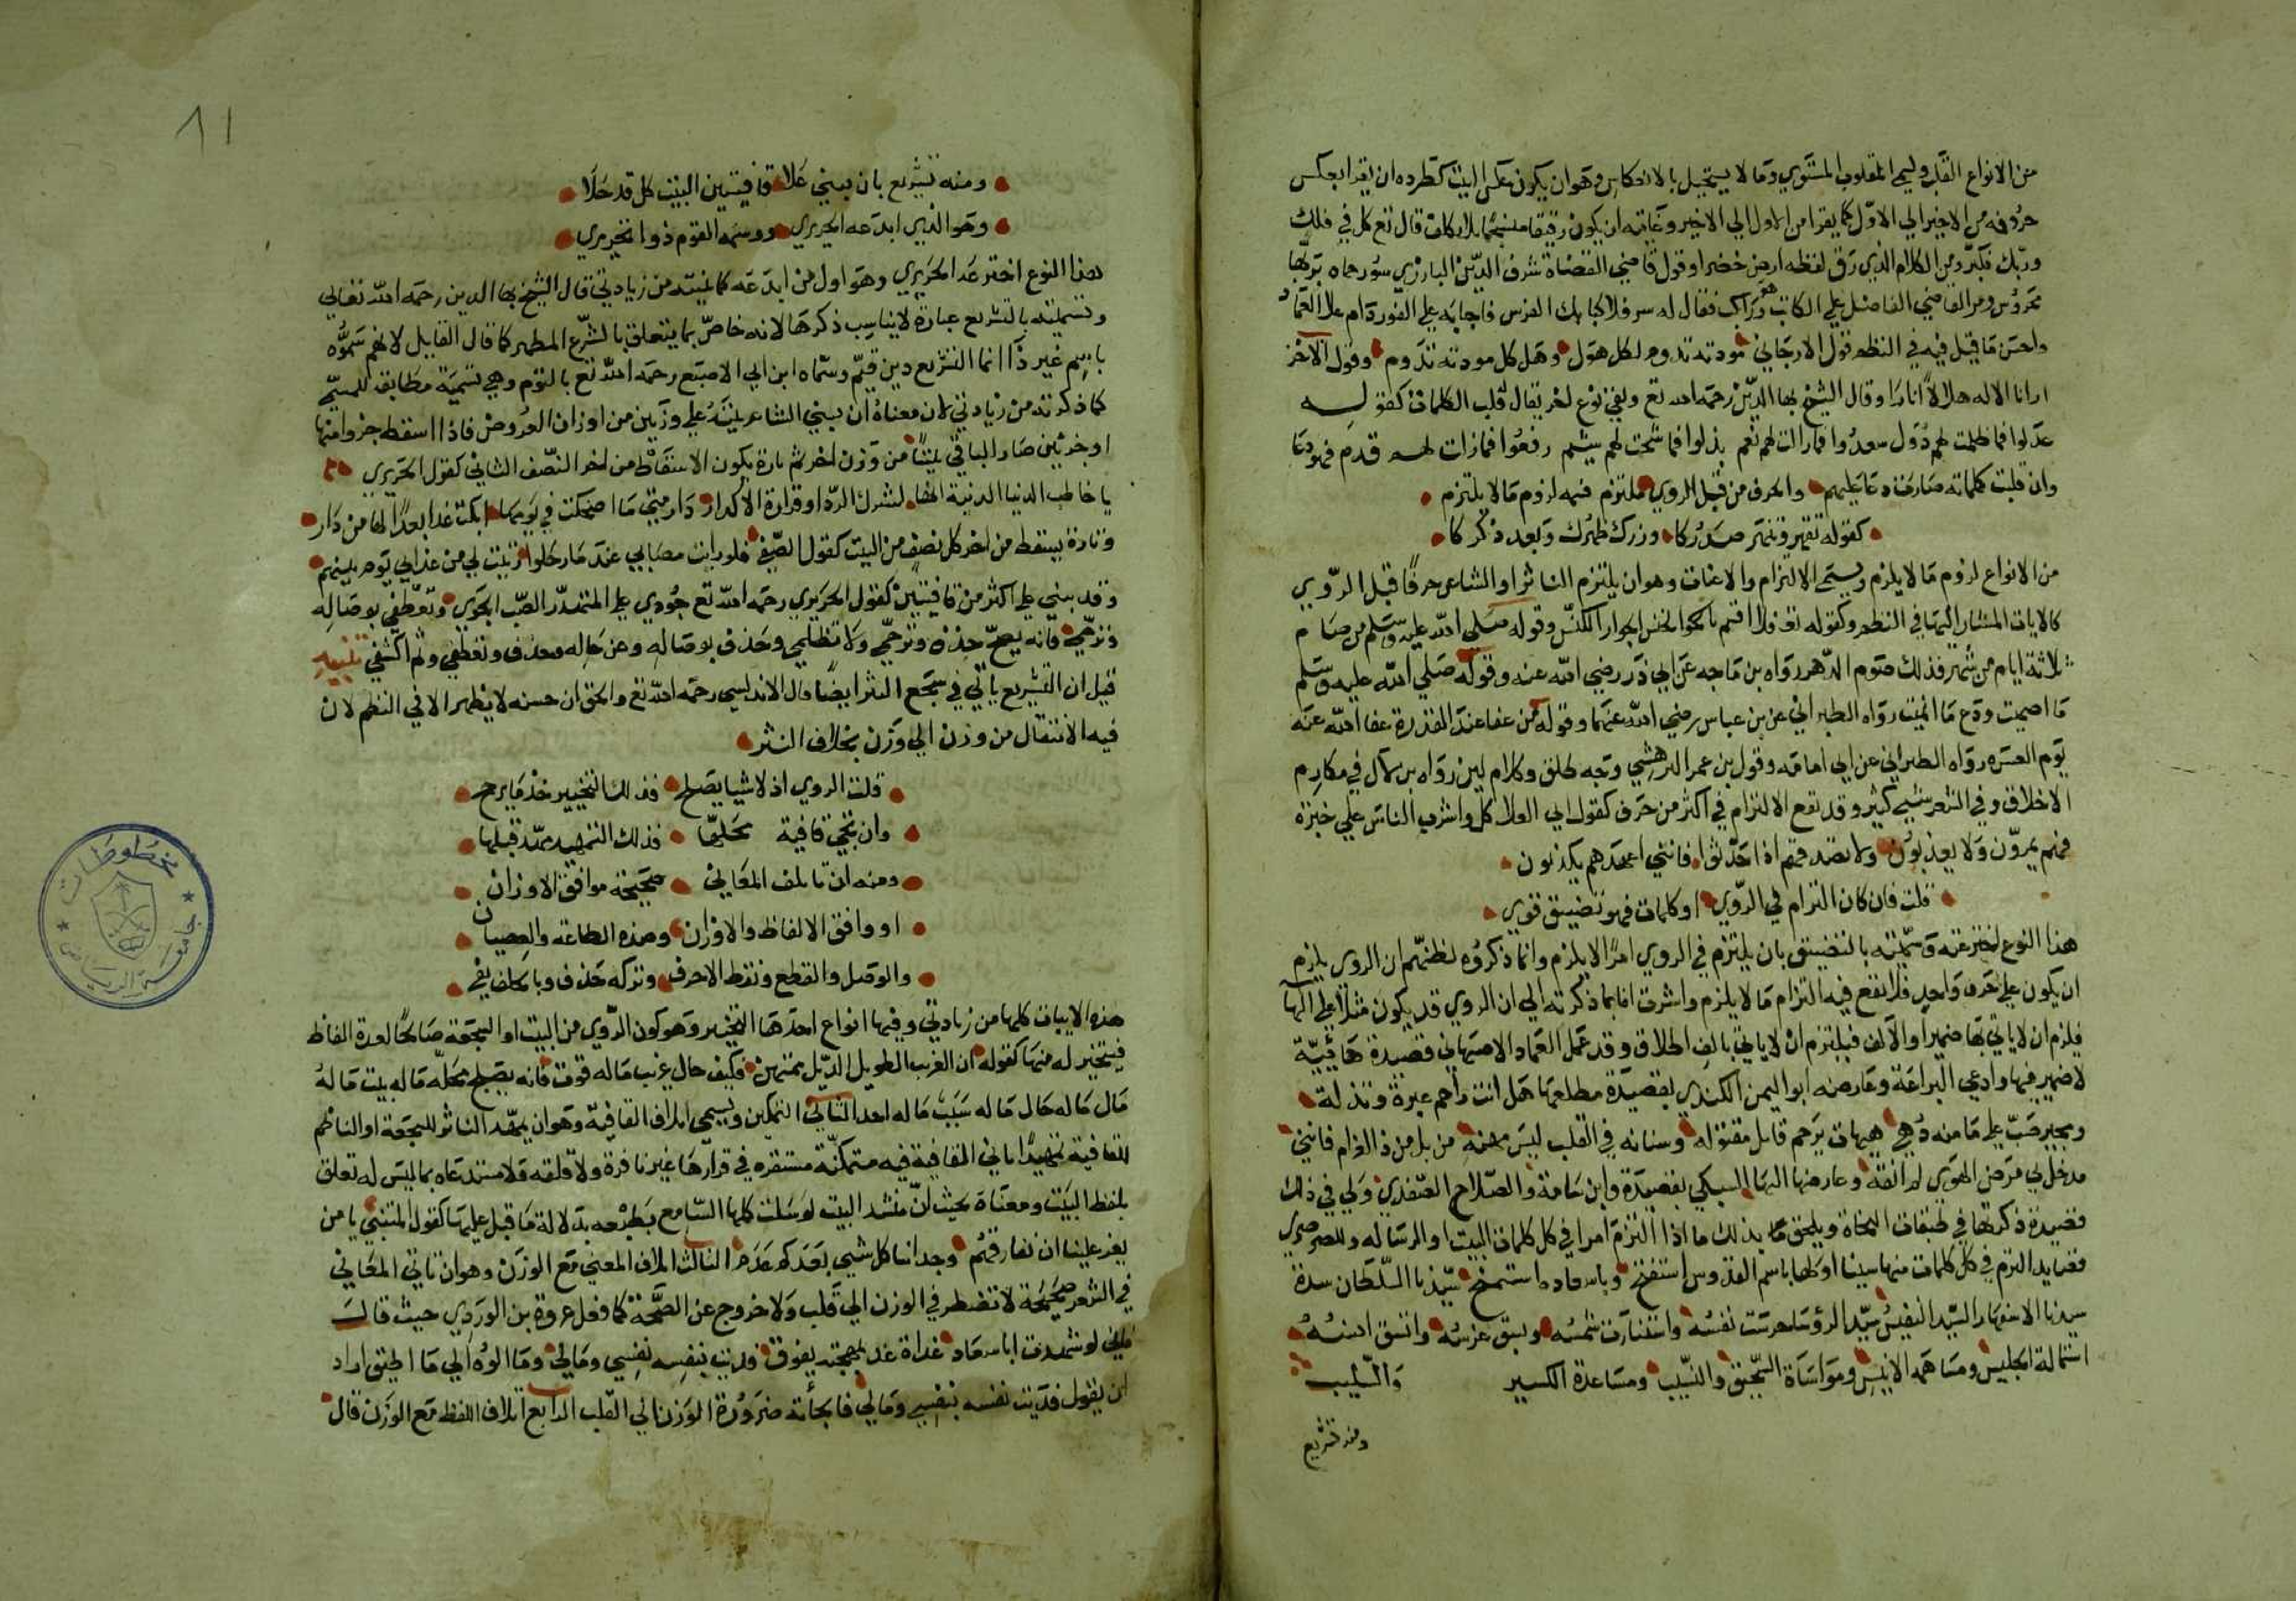 من الانواع القلب ويسمى المقلوب المستوي وما لا يستحيل بالانعكاس وهو ان يكون عكس البيت كطرده ان يقرا بعكس
حروفه من الاخير الى الاول كما يقرا من الاول الى الاخير وغايته ان يكون رقيقا منسجما بلا ركات قال تع كل في فلك
وربك فكبر ومن الكلام الذي رق لفظه ارض خضرا وقول قاضي القضاة شرف الدين البارزي سور حماه بربها
محروس ومر القاضي الفاضل على الكاتب وهو راكب فقال له سر فلا كبا بك الفرس فاجابه على الفور دام علا العماد
واحسن ما قيل فيه في النظم قول الارجاني مودته تدوم لكل هول وهل كل مودته تدوم وقول الاخر
ارانا الاله هلالا انارا وقال الشيخ بها الدين رحمه الله تع وبقي نوع اخر يقال قلب الكلمات كقوله
عدلوا فما ظلمت لهم دول سعدوا فما زالت لهم نعم بذلوا فما شحت لهم شيم رفعوا فما زلت لهم قدم فهو دعا
وان قلبت كلماته صارت دعا عليهم والحرف من قبل الروي ملتزم فيه لزوم ما لا يلتزم
كقوله تقهر وتنهر صدركا وزرك ظهرك وبعد ذكركا
من الانواع لزوم ما لا يلزم ويسمى الالتزام والاعنات وهو ان يلتزم الناثر او الشاعر حرفا قبل الروي
كالايات المشار اليها في النظم وكقوله تع فلا اقسم بالخنس الجوار الكنس وقوله صلى الله عليه وسلم من صام
ثلاثة ايام من شهر فذلك صوم الدهر رواه بن ماجه عن ابي ذر رضي الله عنه وقوله صلى الله عليه وسلم
ما اصميت ودع ما انميت رواه الطبراني عن بن عباس رضي الله عنهما وقوله من عفا عند القدرة عفا الله عنه
يوم العسره رواه الطبراني عن ابي امامة وقول بن عمر البر شي وجه طلق وكلام لين رواه بن لال في مكارم
الاخلاق وفي الشعر شي كثير وقد تقع الالتزام في اكثر من حرف كقول ابي العلا كل واشرب الناس على خبرة
فهم يمرون ولا يعذبون ولا تصدقهم اذا حدثوا فانني اعهدهم يكذبون
قلت فان كان التزام في الروي او كلمات فهو تضييق قوي
هذا النوع اخترعته وسميته بالتضييق بان يلتزم في الروي امرا لا يلزم وانما ذكروه لظنهم ان الروي يلزم
ان يكون على حرف واحد فلا تقع فيه التزام ما لا يلزم واشرت انا بما ذكرته الى ان الروي قد يكون مثلا على الها
فيلزم ان لا ياتي بها ضميرا والالف فيلتزم ان لا ياتي بالف اطلاق وقد عمل العماد الاصبهاني قصيدة هائية
لا ضمير فيها وادعى البراعة وعارضه ابو اليمن الكندي بقصيدة مطلعها هل انت راحم عبرة وتذلله
ومجير صب على ما منه دهي هيهات يرحم قاتل مقتوله وسنانه في القلب ليس منهنه من بل من ذا الغرام فانني
مدخل بي مرض الهوى لم انقه وعارضها البها السبكي بقصيدة وابن نباتة والصلاح الصفدي ولي في ذلك
قصيدة ذكرتها في طبقات النحاة ويلحق بذلك ما اذا التزم امرا في كل كلمات البيت او الرسالة وللصرصري
قصايد التزم في كل كلمات منها سينا اولها باسم القدوس استفتح وباسعاده استمنح سيدنا السلطان سدة
سيدنا الاسفهسار السيد النفيس سيد الرؤسا حرست نفسه واستنارت شمسه وبسق غرسه واتسق انسه
استمالة الجليس ومساهمه الانيس ومواساة السحيق والنسيب ومساعدة الكسير والسليب
ومنه تشريع
٨١
ومنه تشريع بان يبني علا قافيتين البيت كل قد حلا
وهو الذي ابدعه الحريري ووسمه التوم ذوا تحريري
هذا النوع اخترعه الحريري وهو اول من ابدعه كما نبيته من زيادتي قال الشيخ بها الدين رحمه الله تعالى
وتسميته بالتشريع عبارة لا يناسب ذكرها لانه خاص بما يتعلق بالشرع المطهر كما قال القايل لانهم سموه
باسم غير ذا انما التشريع دين قيم وسماه ابن ابي الاصبع رحمه الله تع بالتوم وهي تسمية مطابقة للمسمى
كما ذكرته من زيادتي لان معناه ان يبني الشاعر بيته على وزنين من اوزان العروض فاذا اسقط جزوا منها
او جزئين صار الباقي بيتا من وزن اخر ثم تارة يكون الاسقاط من اخر النصف الثاني كقول الحريري
يا خاطب الدنيا الدنية انها شرك الردا وقرارة الاكدار دار متى ما اضحكت في يومها ابكت غدا بعدا لها من دار
وتارة يسقط من اخر كل نصف من البيت كقول الصفي فلو رايت مصابي عند ما رحلوا رثيت لي من عذابي يوم بينهم
وقد يبني على اكثر من قافيتين كقول الحريري رحمه الله تع جودي على المتهتر الصب الجوي وتعطفي بوصاله
وترحمي فانه يصح حذف وترحمي ولا تظلمي وحذف بوصاله وعن حاله وحذف وتعطفي وثم اكشفي تنبيه
قيل ان التشريع ياتي في سجع النثر ايضا قال الاندلسي رحمه الله تع والحق ان حسنه لا يظهر الا في النظم لان
فيه الانتقال من وزن الى وزن بخلاف النثر
قلت الروي اذ لاشيا يصلح فذلك التخيير خذ ما يرجح
وان تجي قافية محلها فذلك التمهيد مهد قبلها
ومنه ان تاتلف المعاني صحيحة موافق الاوزان
او وافق الالفاظ والاوزان وهذه الطاعة والعصيان
والوصل والقطع ونقط الاحرف وتركه حذف وبالخلف يفي
هذه الابيات كلها من زيادتي وفيها انواع احدها التخيير وهو كون الروي من البيت او السجعة صالحا لعدة الفاظ
فيتخير له منها كقوله ان الغريب الطويل الذيل ممتهن فكيف حال غريب ما له قوت فانه يصلح محله ما له بيت ما له
مال ما له حال ما له سبب ما له احد الثاني التمكين ويسمى ائتلاف القافية وهو ان يمهد الناثر للسجعة او الناظم
للقافية تمهيدا تاتي القافية فيه متمكنة مستقره في قرارها غير نافرة ولا قلقه ولا مستدعاه بما ليس له تعلق
بلفظ البيت ومعناه بحيث ان منشد البيت لو سكت كلمها السامع بطبعه بدلالة ما قبل عليها كقول المتنبي يا من
يعز علينا ان نفارقهم وجداننا كل شي بعدكم عدم الثالث ائتلاف المعنى مع الوزن وهو ان تاتي المعاني
في الشعر صحيحة لا تضطر في الوزن الى قلب ولا خروج عن الصحة كما فعل عروة بن الوردي حيث قال
فاني لو شهدت ابا سعاد غداة غد بمهجته يفوق فديت بنفسه نفسي ومالي وما الوه الى ما اطيق اراد
ان يقول فديت نفسه بنفسي ومالي فالجأته ضرورة الوزن الى القلب الرابع ائتلاف اللفظ مع الوزن قال
مخطوطات
جامعة الرياض